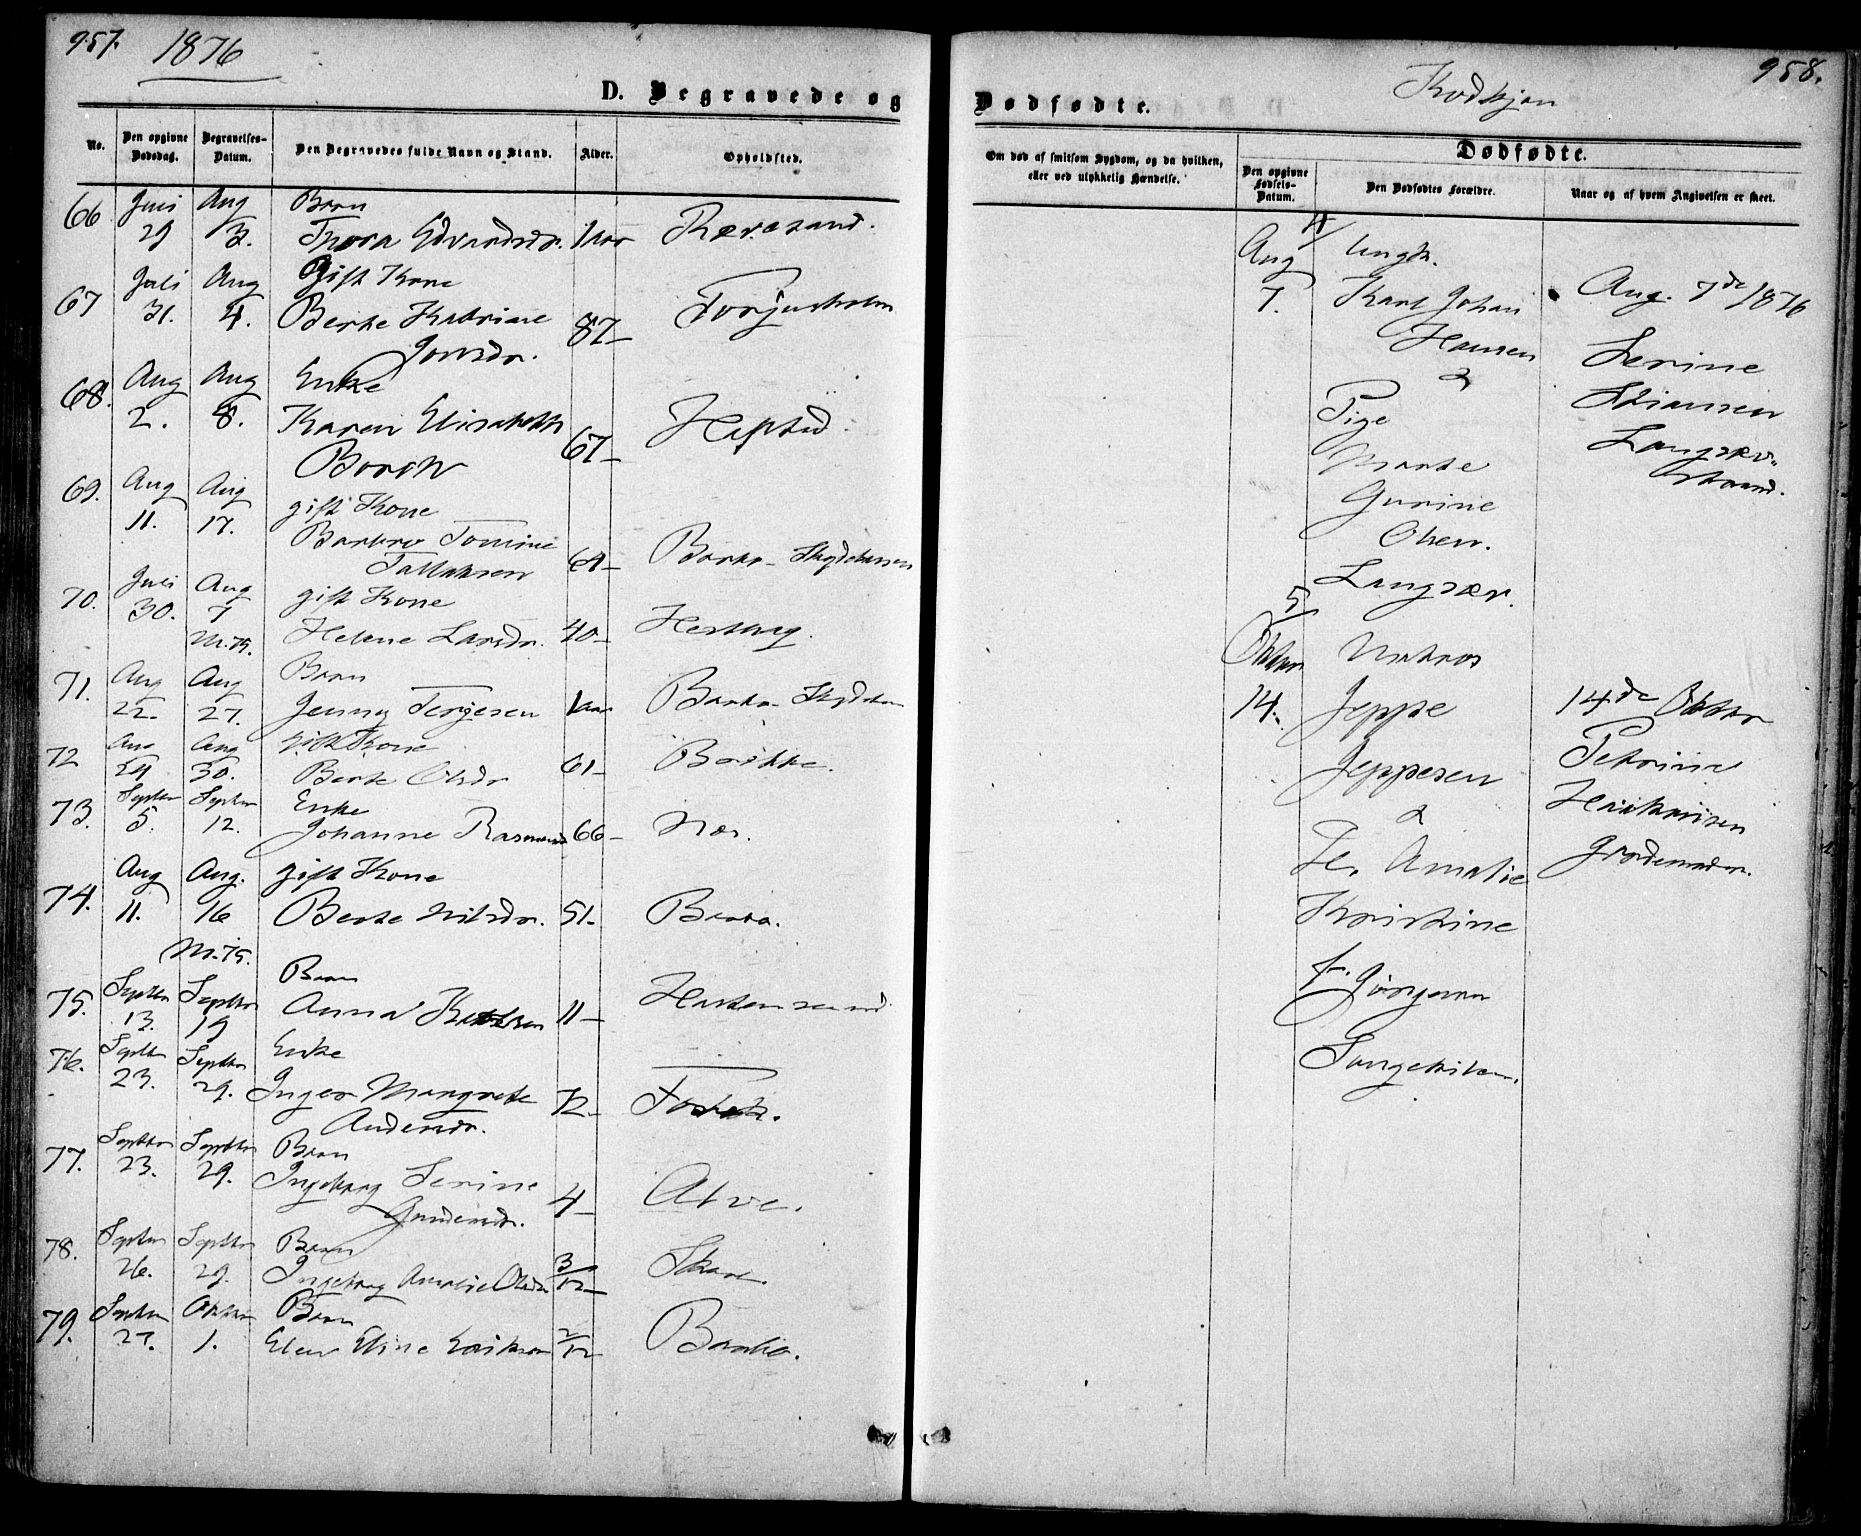 957.
1876
D. Begravede og
No.
Den opgivne Dødsdag.
Begravelses-Datum.
Den Begravedes fulde Navn og Stand.
Alder.
Opholdsted.
66 Juli Aug Barn
29 3. Thora Edvardsdr. 1 aar Rævesand.
67 Juli Aug Gift Kone
31. 4. Berte Katrine 87- Torjusholm
Jonsdr.
68. Aug Aug Enke
2. 8. Karen Elisabeth 67-
Borch
69. Aug Aug gift Kone
11. 17. Barbro Tomine
Tallaksen 64- Barbo
70. Juli Aug gift Kone
30. 7 Helene Larsdr. 40-
Nr. 75.
71. Aug Aug Barn
22. 27. Jenny Terjesen 1 aar Barbo
72 Aug Aug gift Kone
24 30. Berte Olsdr 61-
73. Septbr Septbr Enke
5. 12. Johanne Rasmusd 66-
74. Aug Aug. gift Kone
11. 16 Berte Nilsdr. 51-
Nr. 75.
75. Septbr Septbr Barn
13. 19 Anna 11-
76. Septbr Septbr Enke
23. 29. Inger Margrete 72-
Andersdr.
77. Septbr Septbr Barn
23. 29. Ingeborg Serine 4- Alve.
Gundersdr.
78. Septbr Septbr Barn
26. 29. Ingeborg Amalie Olsdr 3/12-
79. Septbr Oktbr Barn
27. 1. Elen Eline 2/12 Barbo.
958.
Dødfødte.
Om død af smitsom Sygdom, og da hvilken,
eller ved ulykkelig Hændelse.
Dødfødte.
Den opgivne Fødsels-Datum.
Den Dødfødtes Forældre.
Naar og af hvem Angivelsen er skeet.
4/
Aug Ungk.
7. Karl Johan
Hansen
&
Pige
Marte
Gurine
Olsen.
Langsæv.
Aug. 7de 1876
Serine
Stiansen
Langsæv-
strand.
5/
Oktbr. Matros
14. Jeppe
Jeppesen
&
H. Amalie
Kristine
f. Jørgensen
Songekilen.
14de Oktbr
Petrine